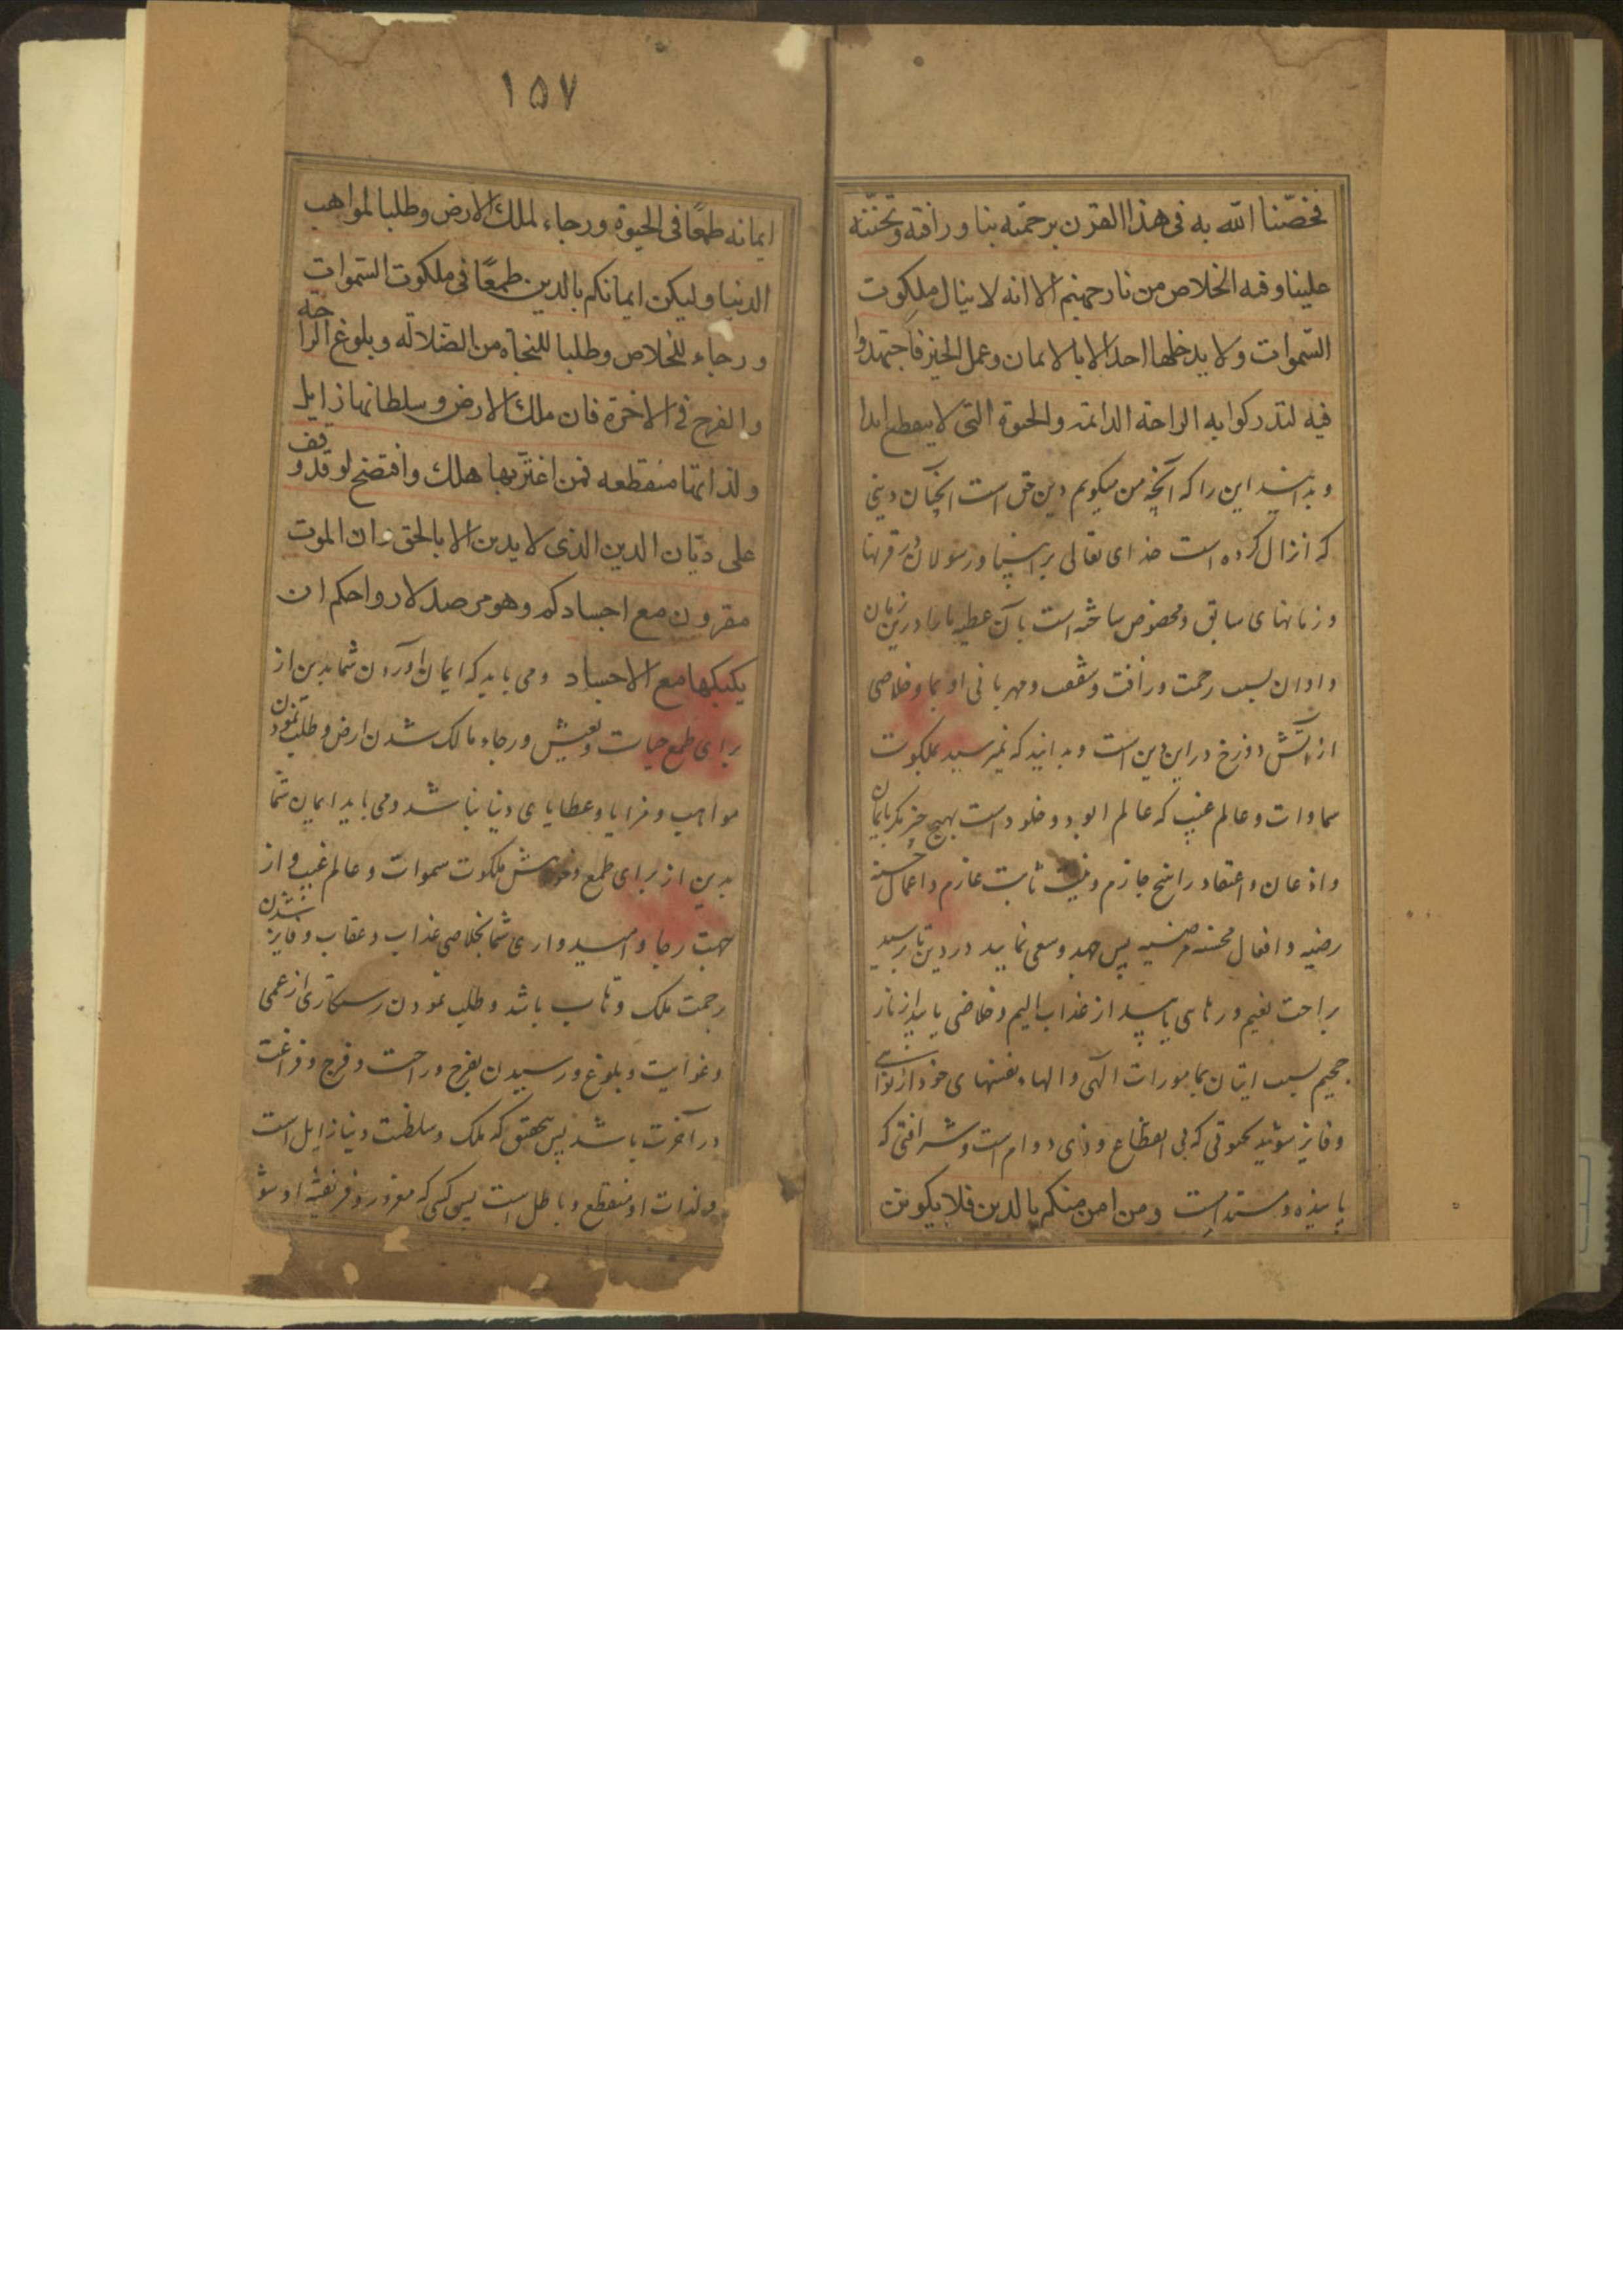 فخصّنا الله به فی هذا القرن برحمته بنا ورافته وتحننه
علینا وفیه الخلاص من نار جهنم الا انه لا ینال ملکوت
السّموات ولا یدخلها احد الا بالایمان وعمل الخیر فاجتهدوا
فیه لتدرکوا به الراحة الدائمة والحیوة التی لا ینقطع ابدا
و بدانید این را که آنچه من میکویم دین حق است آنچنان دینی
که انزال کرده است خدای تعالی بر انبیا و رسولان در قرنها
و زمانهای سابق و مخصوص ساخته است بآن عطیه ما را درین زمان
و اوان بسبب رحمت ورافت و شفقت و مهربانی او بما و خلاصی
از آتش دوزخ در این دین است و بدانید که نمیرسید بملکوت
سماوات و عالم غیب که عالم ابود و خلود است بهیچ چیز مکر بایمان
واذعان واعتقاد راسخ جازم ونیت ثابت عازم و اعمال حسنه
رضیه و افعال محسنه مرضیه پس جهد و سعی نمایید در دین تا برسید
براحت نعیم و رهایی یابید از عذاب الیم و خلاصی یابید از نار
جحیم بسبب اتیان بمامورات الهی و الهاء نفسهای خود از نواهی
وفایز شوید بحیوتی که بی انقطاع وذی دوام است وشرافتی که
پاینده و مستدام است ومن امن منکم بالدین فلا یکونن
۱۵۷
ایمانه طمعًا فی الحیوة ورجاء لملك الارض وطلبا لمواهب
الدنیا ولیکن ایمانکم بالدین طمعًا فی ملکوت السّموات
ورجاء للخلاص وطلبا للنجاة من الضلالة وبلوغ الراحة
والفرح فی الاخرة فان ملك الارض وسلطانها زایل
ولذاتها منقطعه فمن اغتر بها هلك وافتضح لو قد وقف
علی دیّان الدین الذی لا یدین الا بالحق وان الموت
مقرون مع اجسادکم وهو مرصد لارواحکم ان
یکبکبها مع الاجساد ومی باید که ایمان آوردن شما بدین از
برای طمع حیات و تعیش و رجاء مالک شدن ارض و طلب نمودن
مواهب و مزایا و عطایای دنیا نباشد و می باید ایمان شما
بدین از برای طمع و خواهش ملکوت سموات و عالم غیب و از
جهت رجا و امیدواری شما بخلاصی عذاب و عقاب و فایز شدن
رحمت ملک وهاب باشد و طلب نمودن رستکاری از عمی
وغوایت و بلوغ و رسیدن بفرح و راحت و فرج و فراغت
در آخرت باشد پس بتحقیق که ملک و سلطنت دنیا زایل است
ولذات او منقطع و باطل است پس کسی که مغرور و فریفته او شو